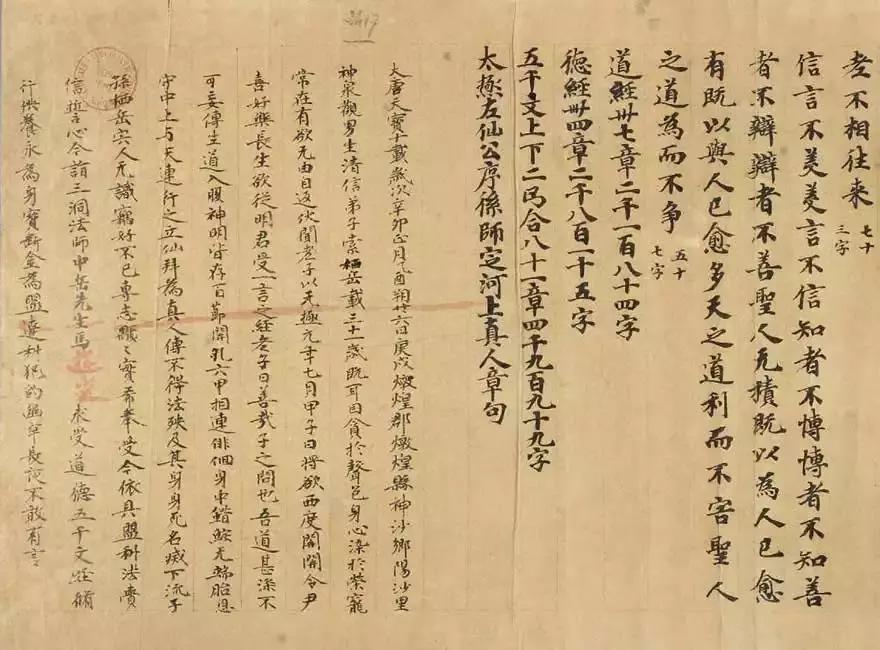 老不相往来 七十三字
信言不美美言不信知者不愽愽者不知善
者不辯辯者不善聖人无積既以為人己愈
有既以與人己愈多天之道利而不害聖人
之道為而不争 五十七字
道經卅七章二千一百八十四字
德經卌四章二千八百一十五字
五千文上下二局合八十一章四千九百九十九字
太極左仙公序係師定河上真人章句
大唐天寶十載歲次辛卯正月乙酉朔廿六日庚戌燉煌郡燉煌縣神沙鄉陽沙里
神泉觀男生清信弟子索栖岳載三十一歲既耳目貪於聲色身心染於榮寵
常在有欲无由自返伏聞老子以无極元年七月甲子日將欲西度關關令尹
喜好樂長生欲從明君受一言之經老子曰善哉子之問也吾道甚深不
可妄傳生道入腹神明皆存百節關孔六甲相連徘徊身中錯綜无端胎息
守中上与天連行之立仙拜為真人傳不得法殃及其身身死名滅下流子
孫栖岳宍人无識竊好不已專志顒顒實希奉受今依具盟科法賫
信誓心今詣三洞法師中岳先生馬 求受道德五千文經脩
行供養永為身寶斷金為盟違科犯約幽牢長夜不敢有言